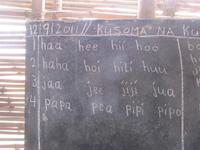 12/9/2011// KUSOMA NA KU
1 haa hee hii hoo
2 haha hoi hiti huu
3 jaa jee jiji jua
4 papa pea pipi pipo